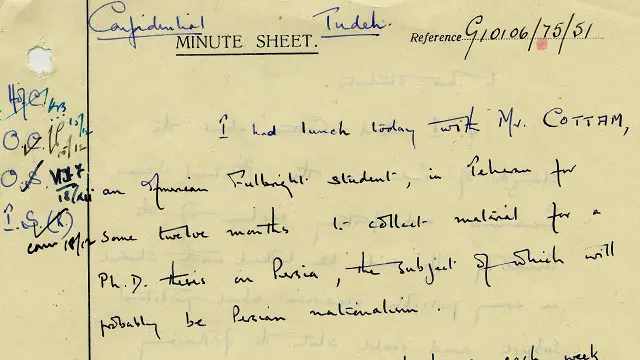 Confidential
Tudeh.
MINUTE SHEET.
Reference G10106/75/51
H of C
O.C. 15/12
O.S.
I.S.
I had lunch today with Mr. COTTAM,
an American Fulbright student, in Teheran for
some twelve months to collect material for a
Ph.D. thesis on Persia, the subject of which will
probably be Persian nationalism.
each week